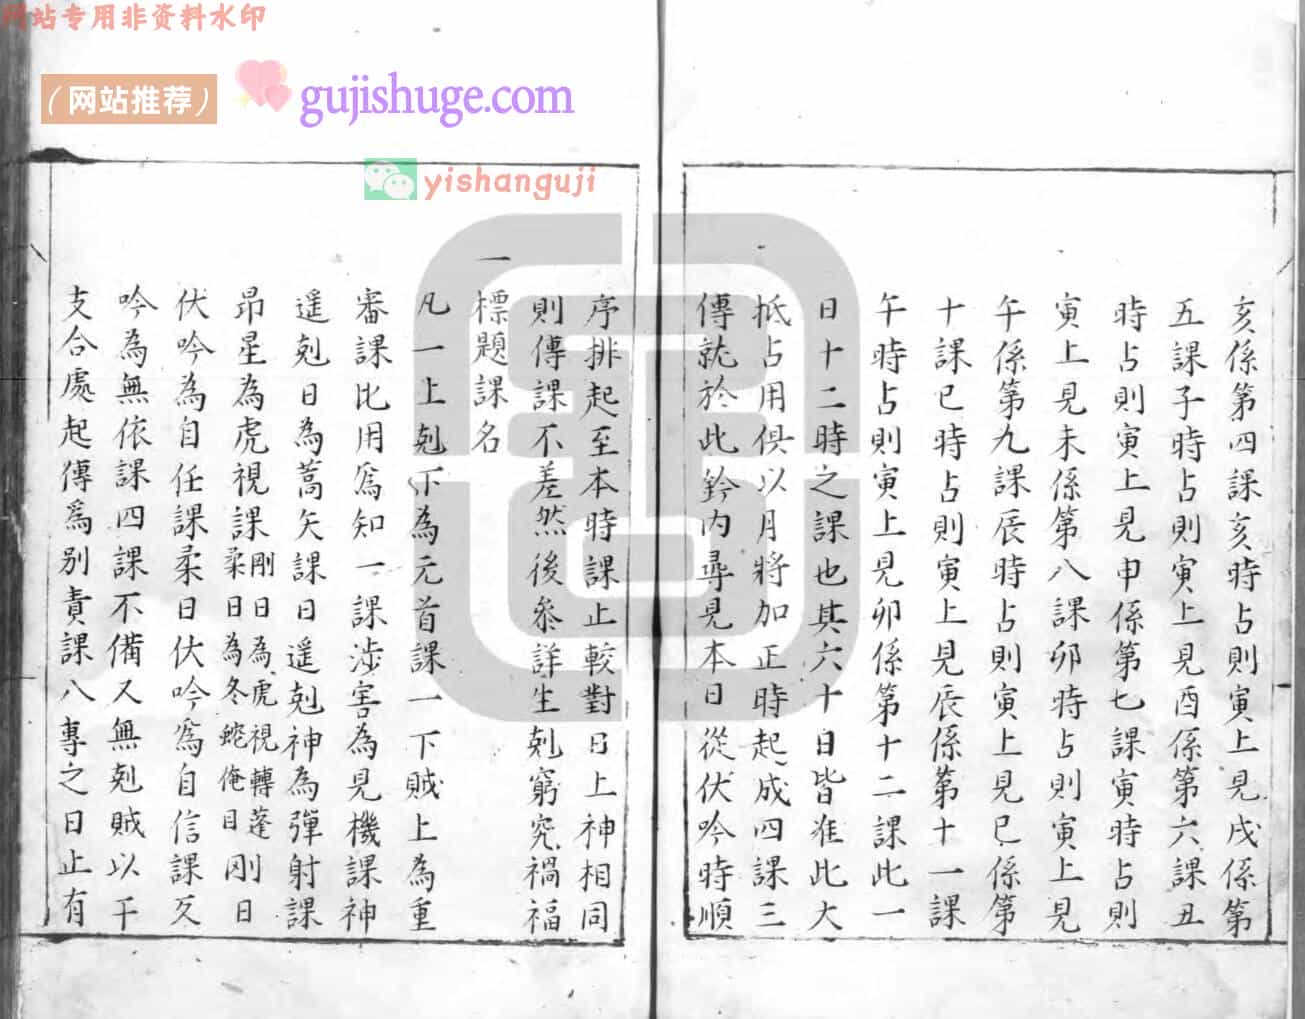 网站专用非资料水印
（网站推荐）
gujishuge.com
yishanguji
亥係第四課亥時占則寅上見戌係第
五課子時占則寅上見酉係第六課丑
時占則寅上見申係第七課寅時占則
寅上見未係第八課卯時占則寅上見
午係第九課辰時占則寅上見巳係第
十課巳時占則寅上見辰係第十一課
午時占則寅上見卯係第十二課此一
日十二時之課也其六十日皆准此大
抵占用俱以月將加正時起成四課三
傳就於此鈐內尋見本日從伏吟時順
序排起至本時課止較對日上神相同
則傳課不差然後叅詳生剋窮究禍福
一標題課名
凡一上剋下為元首課一下賊上為重
審課比用爲知一課涉害為見機課神
遥剋日為蒿矢課日遥剋神為彈射課
昂星為虎視課剛日為虎視轉蓬柔日為冬蛇俺目剛日
伏吟為自任課柔日伏吟爲自信課反
吟為無依課四課不備又無剋賊以干
支合處起傳爲別責課八專之日止有